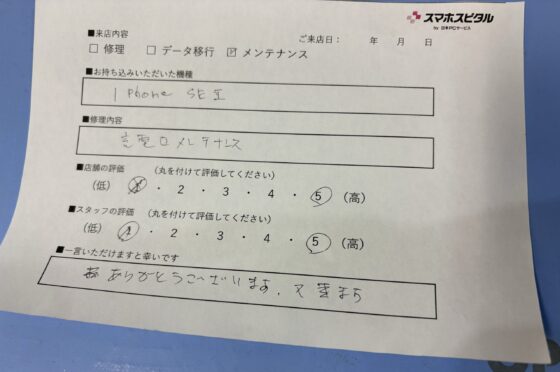 スマホスピタル
by 日本PCサービス
■来店内容
ご来店日： 年 月 日
□ 修理 □ データ移行 ☑ メンテナンス
■お持ち込みいただいた機種
iPhone SE II
■修理内容
充電口メンテナンス
■店舗の評価 （丸を付けて評価してください）
（低） 1 ・ 2 ・ 3 ・ 4 ・ 5 （高）
■スタッフの評価 （丸を付けて評価してください）
（低） 1 ・ 2 ・ 3 ・ 4 ・ 5 （高）
■一言いただけますと幸いです
ありがとうございます、又来ます